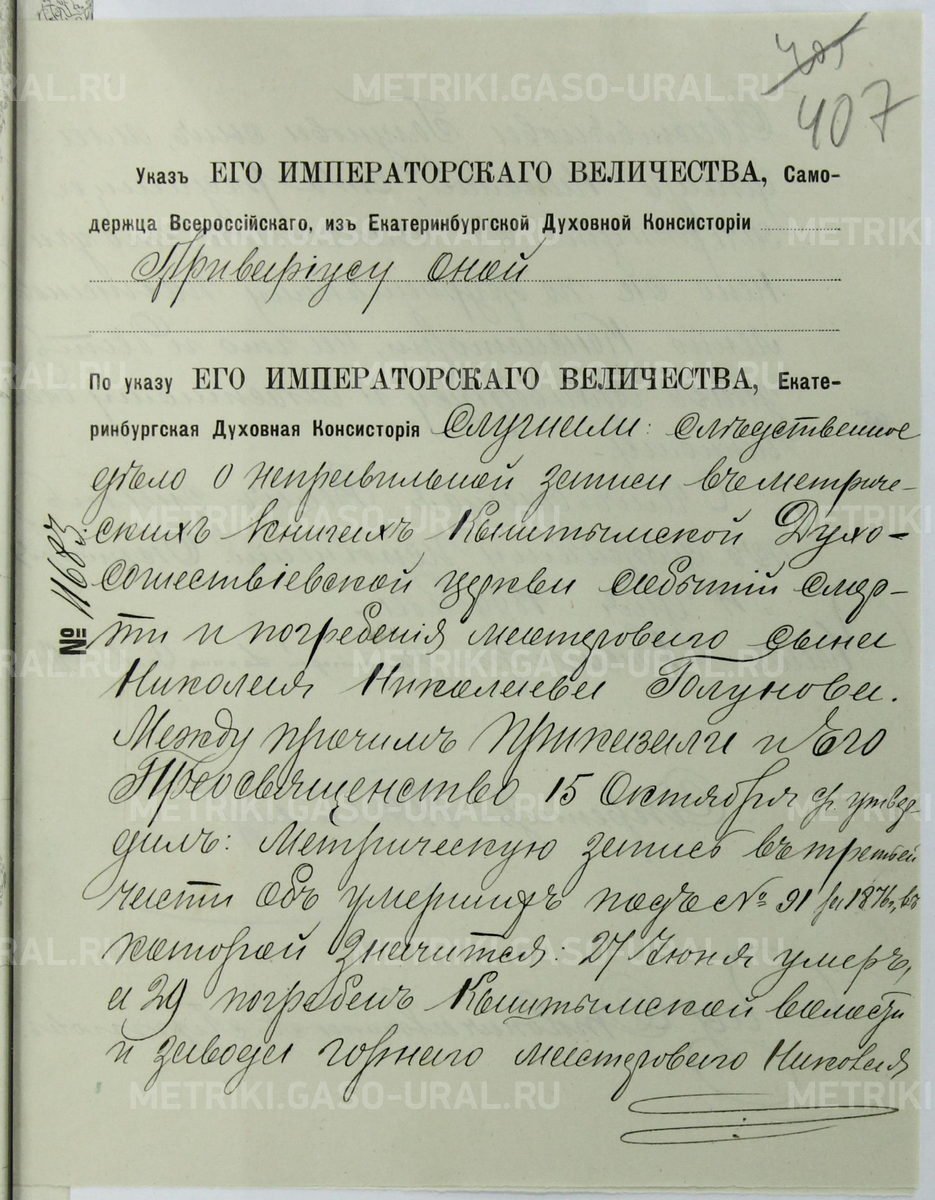 405
407
Указъ ЕГО ИМПЕРАТОРСКАГО ВЕЛИЧЕСТВА, Само-
держца Всероссійскаго, изъ Екатеринбургской Духовной Консисторіи
Архиваріусу оной
По указу ЕГО ИМПЕРАТОРСКАГО ВЕЛИЧЕСТВА, Екате-
ринбургская Духовная Консисторія Слушали: слѣдственное
дѣло о неправильной записи въ метриче-
скихъ книгахъ Кыштымской Духо-
сошествіевской церкви событій смер-
ти и погребенія мастероваго сына
Николая Николаева Голунова.
Между прочимъ приказали и Его
Преосвященство 15 Октября с.г. утвер-
дилъ: Метрическую запись въ третьей
части объ умершихъ подъ № 91 за 1876 г., въ
которой значится: 27 Іюня умеръ,
а 29 погребенъ Кыштымской волости
и завода горнаго мастероваго Николая
№ 11683
METRIKI.GASO-URAL.RU